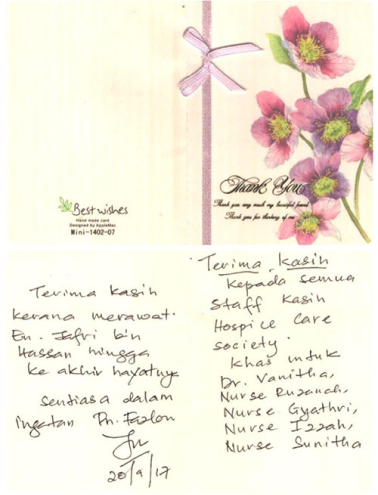 Best wishes
Hand made card
Designed by AppleMac
Mini-1402-07
Thank You
Thank you very much my beautiful friend
Thank you for thinking of me
Terima kasih
kerana merawat
En. Jafri bin
Hassan hingga
ke akhir hayatnya
sentiasa dalam
ingatan Pn. Fazlon
20/9/17
Terima kasih
kepada semua
staff kasih
Hospice Care
society.
khas untuk
Dr. Vanitha,
Nurse Ruzanah,
Nurse Gyathri,
Nurse Izzah,
Nurse Sunitha